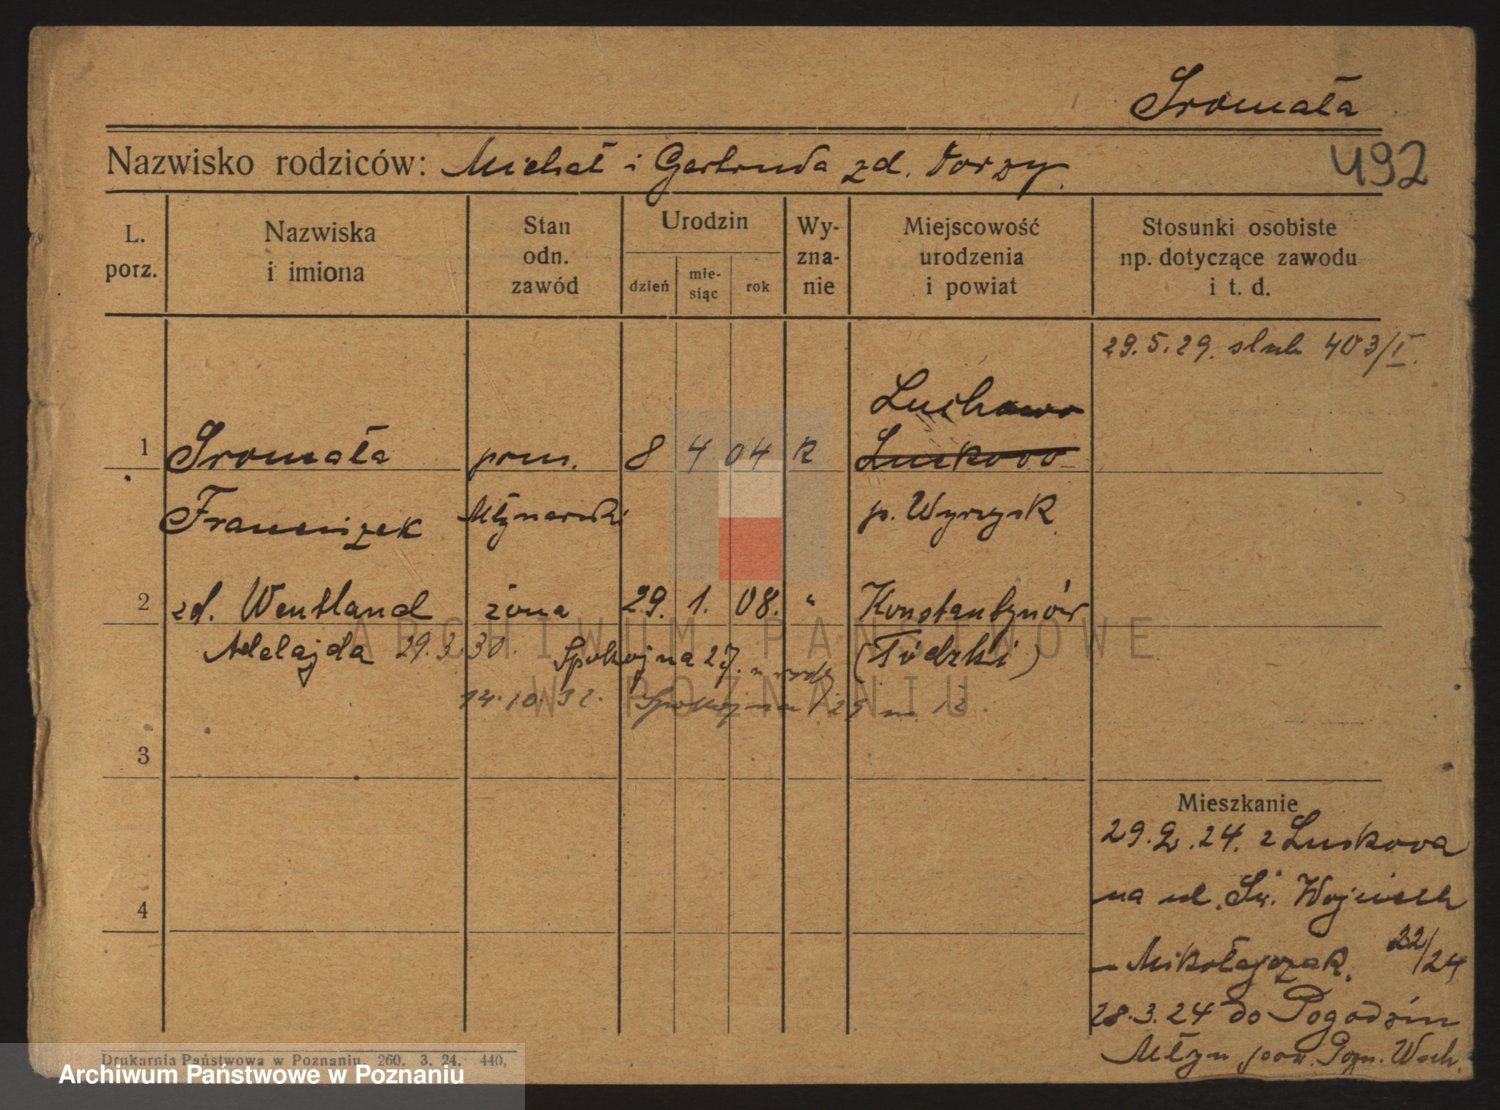 Sromała
492
Nazwisko rodziców: Michał i Gertruda zd. Torzy.
L. porz.
Nazwiska i imiona
Stan odn. zawód
Urodzin
dzień
mie-siąc
rok
Wy-zna-nie
Miejscowość urodzenia i powiat
Stosunki osobiste np. dotyczące zawodu i t. d.
29.5.29. ślub 403/I.
Luchowo
1 Sromała pom. 8 4 04 R Luskowo
Franciszek Młynarski p. Wyrzysk
2 zd. Wentland żona 29. 1. 08. " Konstantynów
Adelajda 29.3.30. Spokojna 27. u rodz (Łódzki)
14.10.32. Spokojna 25 m. 12.
ARCHIWUM PAŃSTWOWE
W POZNANIU
3
Mieszkanie
29.2.24. z Luskova
na ul. Św. Wojciech
4
22/24
– Mikołajczak.
28.3.24 do Pogodzin
Młyn pow. Pozn. Wsch.
Drukarnia Państwowa w Poznaniu. 260. 3. 24. 440,
Archiwum Państwowe w Poznaniu